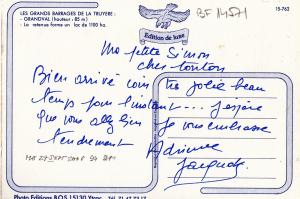 LES GRANDS BARRAGES DE LA TRUYERE:
- GRANDVAL (hauteur : 85 m)
La retenue forme un lac de 1100 ha.
Edition de luxe
15-762
Ma petite Simon
cher tonton
Bien arrivé coin très jolie beau
temps pour l'instant... j'espère
que vous allez bien je vous embrasse
tendrement
Adrienne
Jacquot
Photo Editions BOS 15130 Ytrac